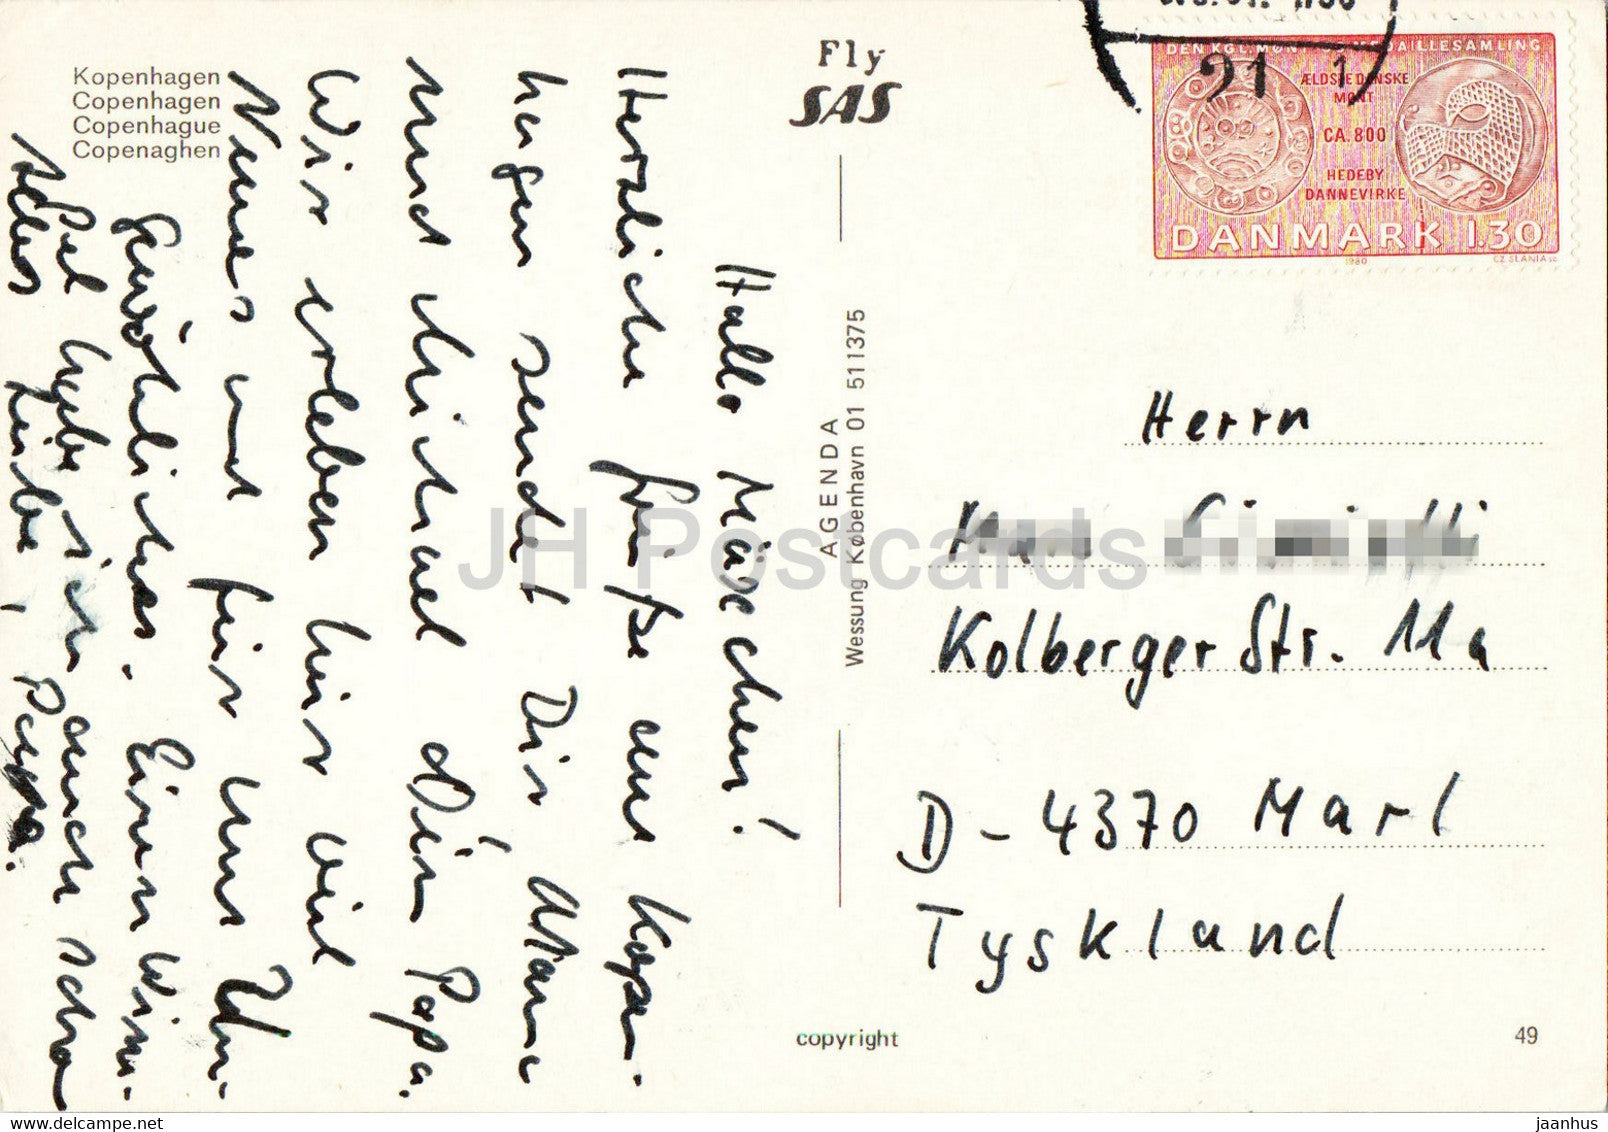 Kopenhagen
Copenhagen
Copenhague
Copenaghen
Fly
SAS
DEN KGL. MØNT OG MEDAILLESAMLING
ÆLDSTE DANSKE
MØNT
CA. 800
HEDEBY
DANNEVIRKE
DANMARK 1.30
1980
CZ. SLANIA sc
91 1
Hallo Mäxchen!
Herzliche Grüße aus Kopen-
hagen sendet Dir, Mama
und Michael Dein Papa.
Wir erleben hier viel
Neues und für uns Un-
gewöhnliches. Einen Wim-
pel habe ich auch schon
Alles Liebe, Pappa.
AGENDA
Wessung København 01 511375
Herrn
Kolberger Str. 11a
D-4370 Marl
Tyskland
copyright
49
JH Postcards
https://www.jhpostcards.com
jaanhus